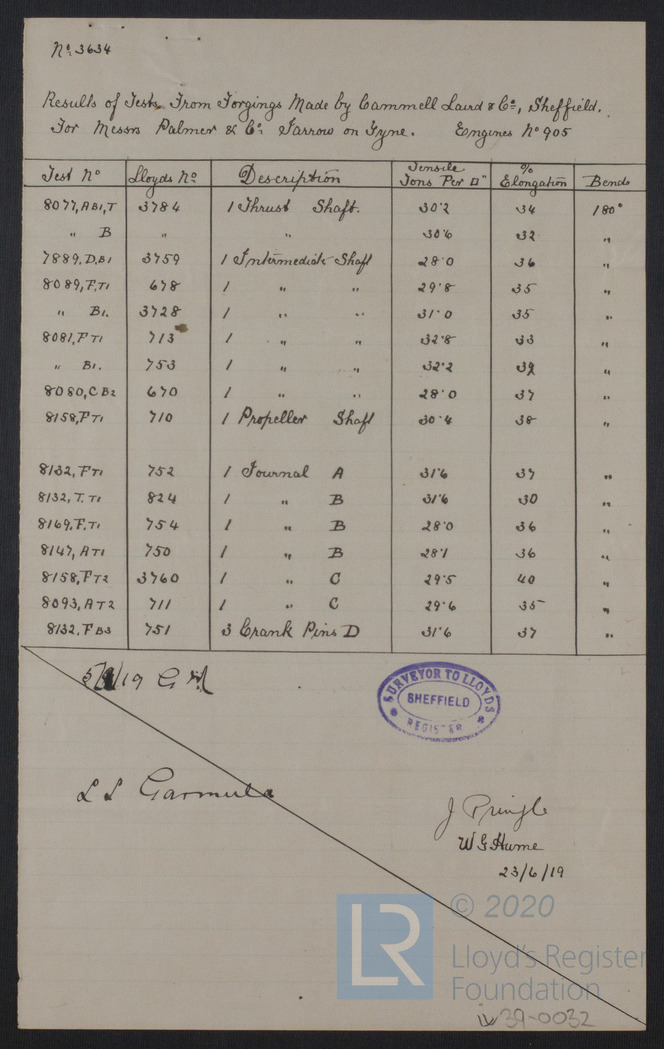 No 3634
Results of Tests From Forgings Made by Cammell Laird & Co, Sheffield.
For Messrs Palmer & Co Jarrow on Tyne. Engines No 905
Test No Lloyds No Description Tensile Tons Per □" % Elongation Bends
8077, A B1, T 3784 1 Thrust Shaft. 30·2 34 180°
" B " " 30·6 32 "
7889, D, B1 3759 1 Intermediate Shaft 28·0 36 "
8089, F, T1 678 1 " " 29·8 35 "
" B1. 3728 1 " " 31·0 35 "
8081, F T1 713 1 " " 32·8 33 "
" B1. 753 1 " " 32·2 "
8080, C B2 670 1 " " 28·0 37 "
8158, F T1 710 1 Propeller Shaft 30·4 38 "
8132, F T1 752 1 Journal A 31·6 37 "
8132, T. T1 824 1 " B 31·6 30 "
8169, F. T1 754 1 " B 28·0 36 "
8147, A T1 750 1 " B 28·1 36 "
8158, F T2 3760 1 " C 29·5 40 "
8093, A T2 711 1 " C 29·6 35 "
8132, F B3 751 3 Crank Pins D 31·6 37 "
SURVEYOR TO LLOYDS
SHEFFIELD
REGISTER
J Pringle
W G Hume
23/6/19
LR
© 2020
Lloyd's Register
Foundation
39-0032